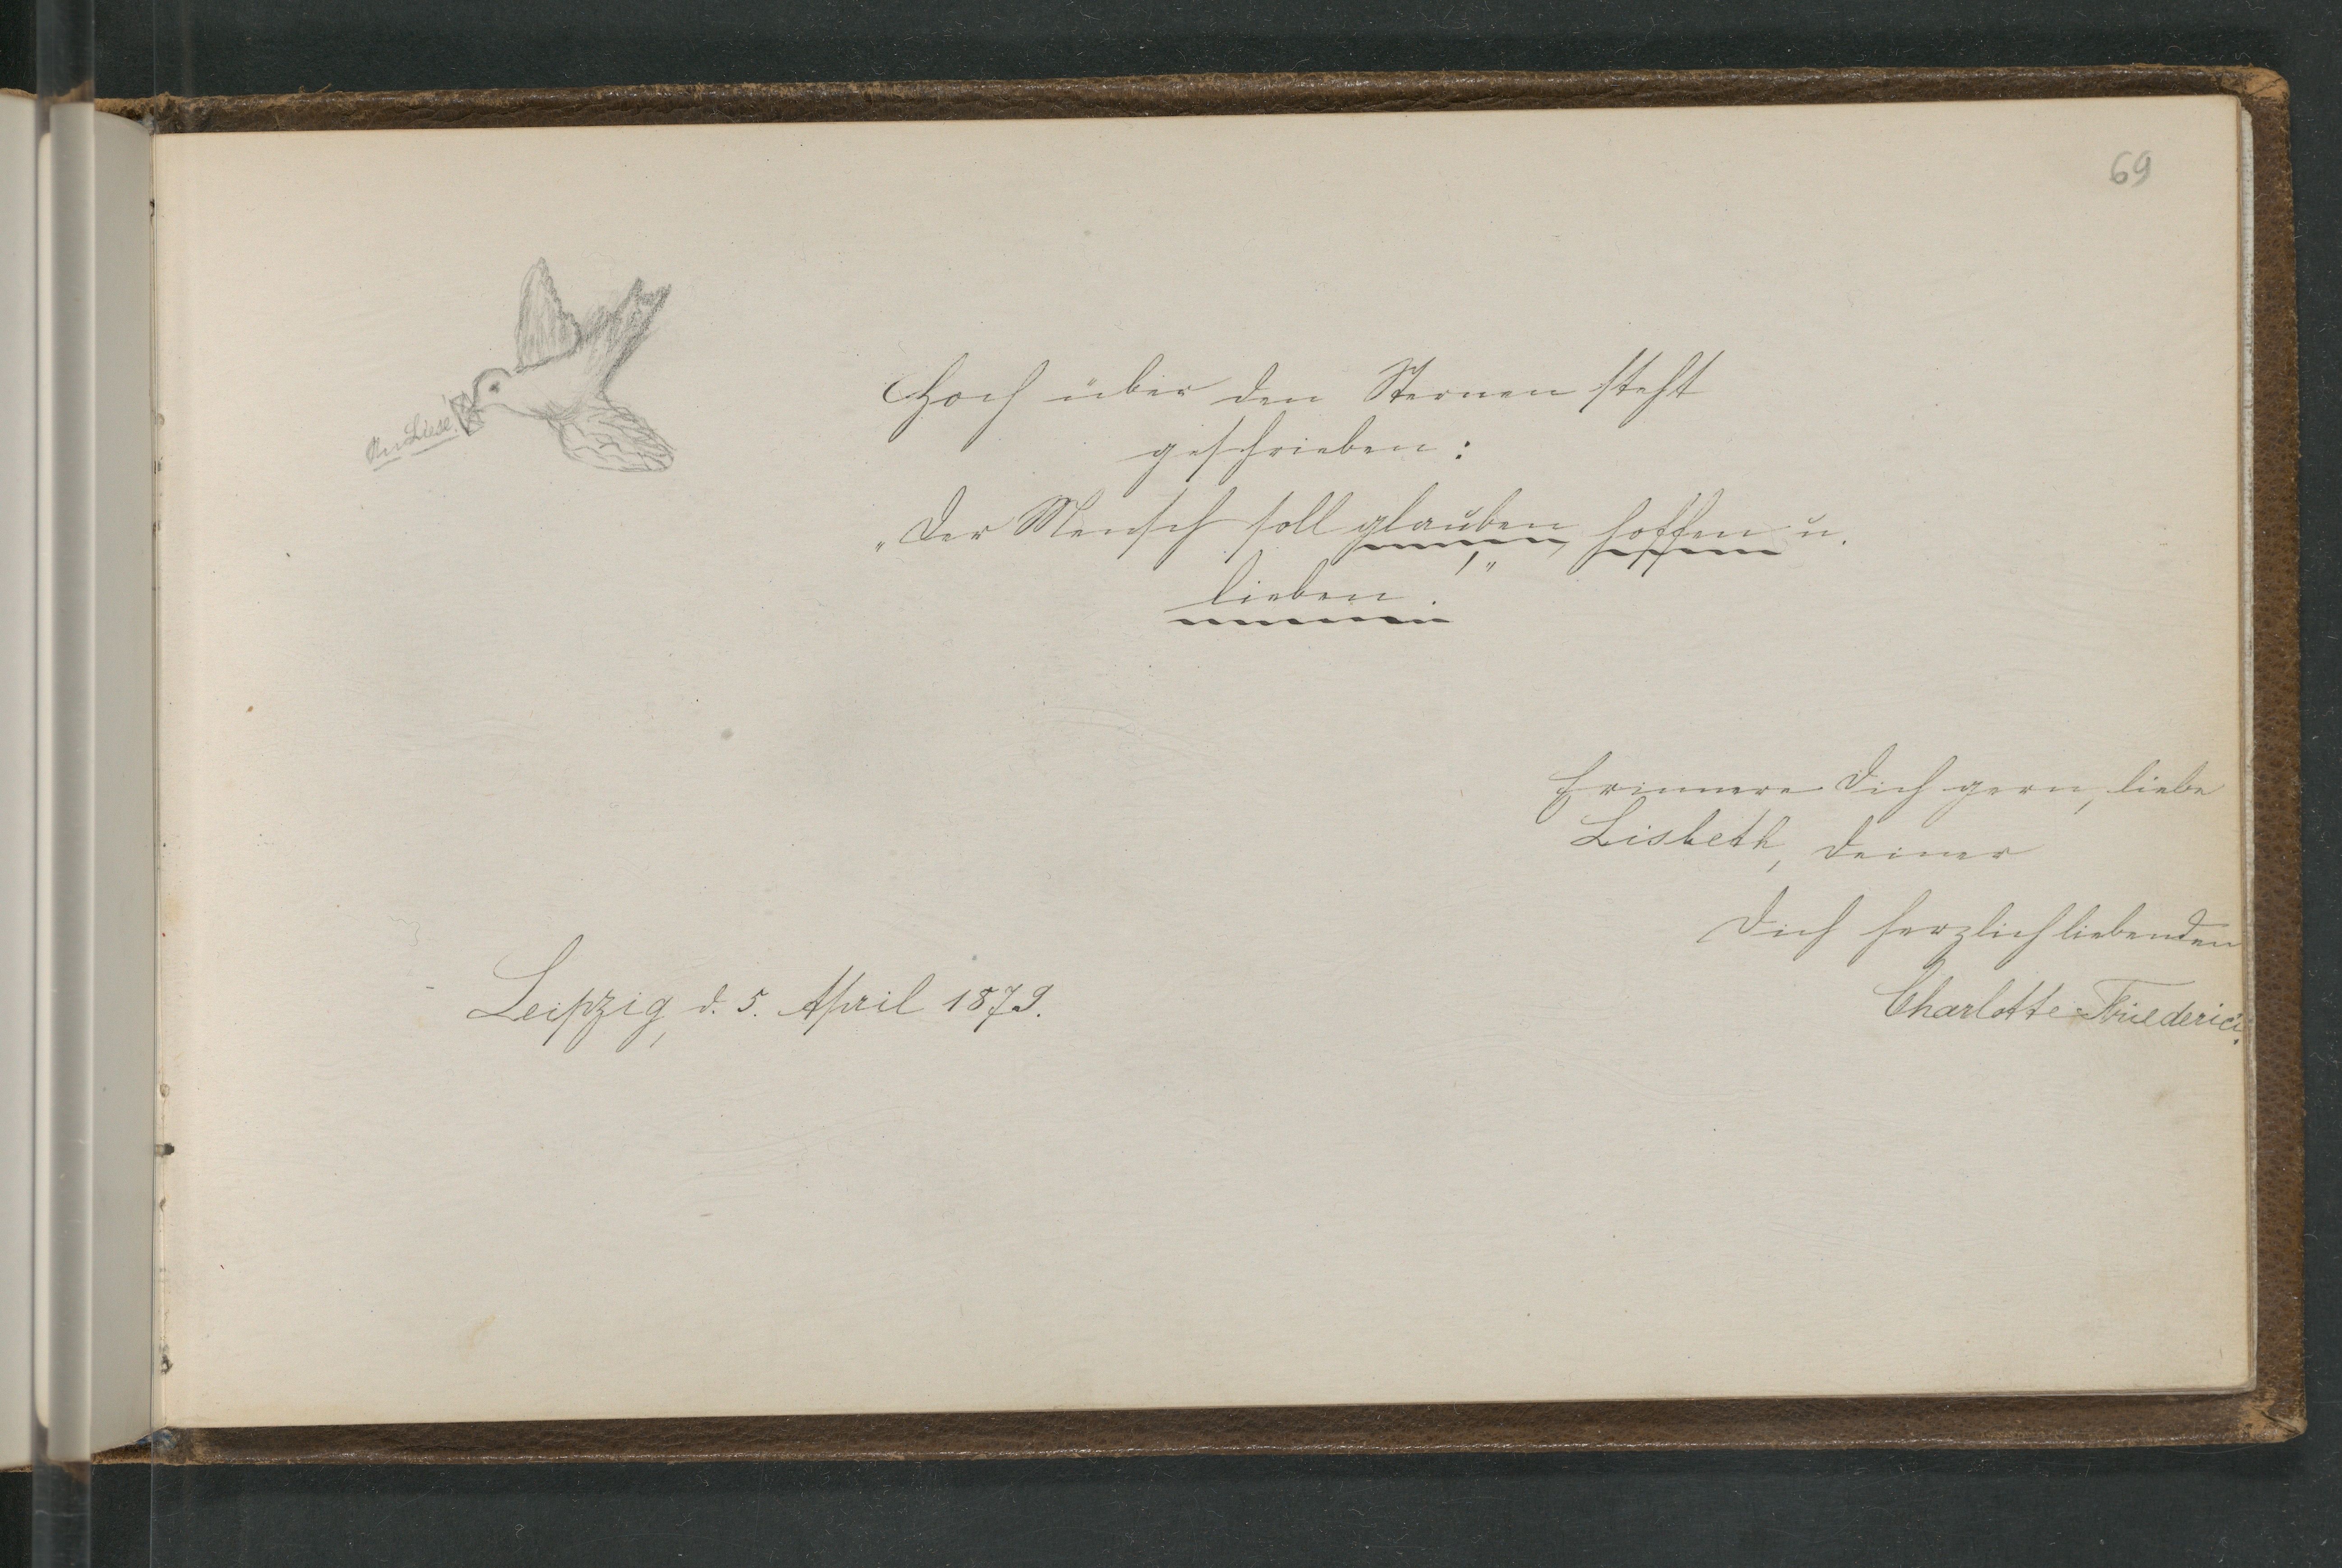 69
An Liese!
Hoch über den Sternen steht
geschrieben:
„Der Mensch soll glauben, hoffen u.
lieben.“
Erinnere Dich gern, liebe
Lisbeth, Deiner
Dich herzlich liebenden
Charlotte Friederici.
Leipzig, d. 5. April 1879.